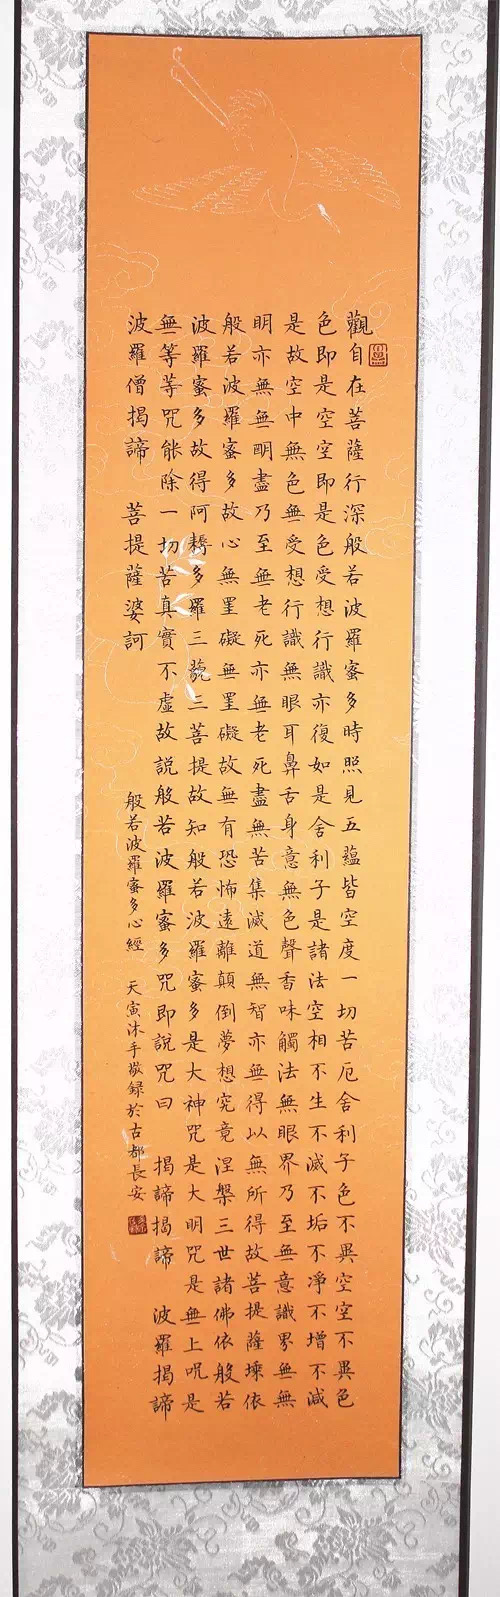 觀自在菩薩行深般若波羅蜜多時照見五蘊皆空度一切苦厄舍利子色不異空空不異色
色即是空空即是色受想行識亦復如是舍利子是諸法空相不生不滅不垢不淨不增不減
是故空中無色無受想行識無眼耳鼻舌身意無色聲香味觸法無眼界乃至無意識界無無
明亦無無明盡乃至無老死亦無老死盡無苦集滅道無智亦無得以無所得故菩提薩埵依
般若波羅蜜多故心無罣礙無罣礙故無有恐怖遠離顛倒夢想究竟涅槃三世諸佛依般若
波羅蜜多故得阿耨多羅三藐三菩提故知般若波羅蜜多是大神咒是大明咒是無上咒是
無等等咒能除一切苦真實不虛故說般若波羅蜜多咒即說咒曰 揭諦揭諦 波羅揭諦
波羅僧揭諦 菩提薩婆訶
般若波羅蜜多心經 天寅沐手敬録於古都長安